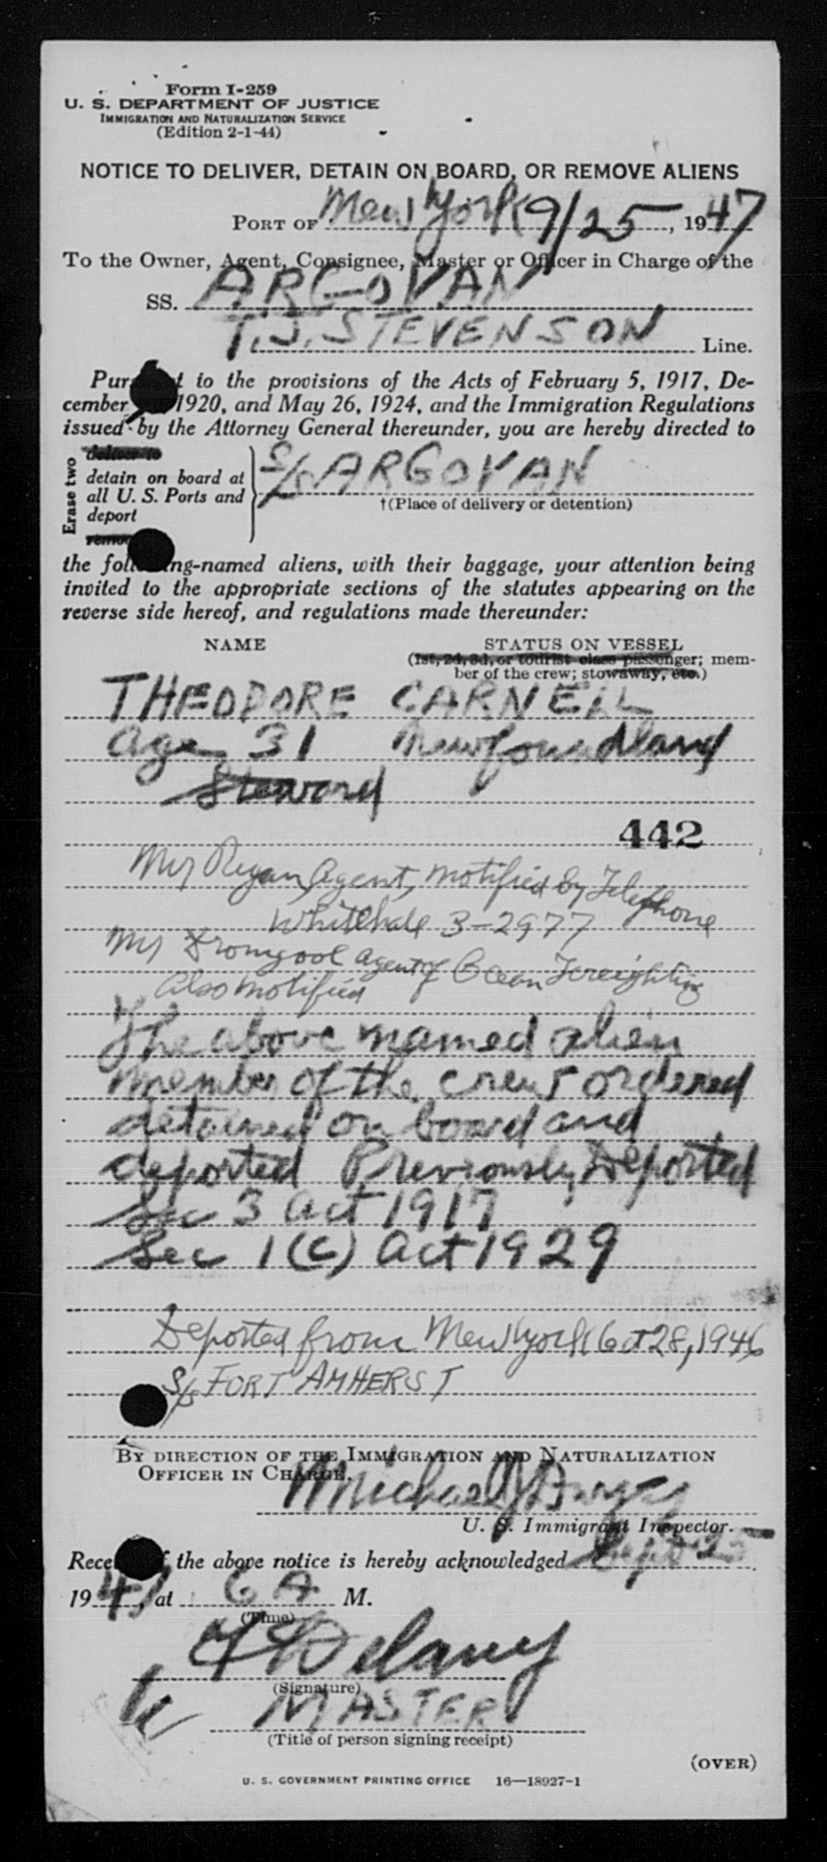 Form I-259
U. S. DEPARTMENT OF JUSTICE
IMMIGRATION AND NATURALIZATION SERVICE
(Edition 2-1-44)
NOTICE TO DELIVER, DETAIN ON BOARD, OR REMOVE ALIENS
PORT OF New York 9/25, 1947
To the Owner, Agent, Consignee, Master or Officer in Charge of the
SS. ARGOVAN
T.J. STEVENSON Line.
Pursuant to the provisions of the Acts of February 5, 1917, De-
cember 1920, and May 26, 1924, and the Immigration Regulations
issued by the Attorney General thereunder, you are hereby directed to
Erase two
deliver to
detain on board at
all U. S. Ports and
deport
remove
S/S ARGOVAN
†(Place of delivery or detention)
the following-named aliens, with their baggage, your attention being
invited to the appropriate sections of the statutes appearing on the
reverse side hereof, and regulations made thereunder:
NAME STATUS ON VESSEL
(1st, 2d, 3d, or tourist class passenger; mem-
ber of the crew; stowaway, etc.)
THEODORE CARNELL
Age 31 Newfoundland
Steward
442
Mr Ryan, Agent, notified by Telephone
Whitehall 3-2977
Mr Dromgool agent of Ocean Freighting
Also notified
The above named alien
member of the crew ordered
detained on board and
deported Previously Deported
Sec 3 Act 1917
Sec 1(c) Act 1929
Deported from New York Oct 28, 1946
S/S FORT AMHERST
BY DIRECTION OF THE IMMIGRATION AND NATURALIZATION
OFFICER IN CHARGE,
Michael J
U. S. Immigrant Inspector.
Receipt of the above notice is hereby acknowledged Sept 25
1947, at 6 A M.
(Time)
Delaney
(Signature)
MASTER
(Title of person signing receipt)
(OVER)
U. S. GOVERNMENT PRINTING OFFICE 16—18927-1